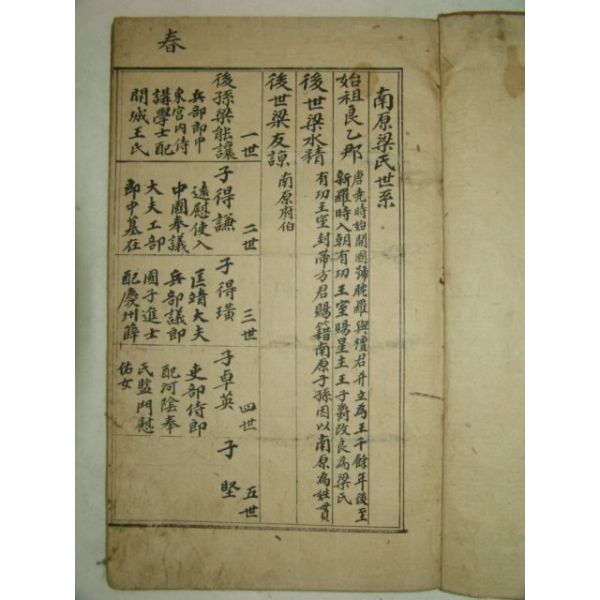 春
南原梁氏世系
始祖良乙那
唐堯時始開國號耽羅與檀君并立為王千餘年後至
新羅時入朝有功王室賜星主王子爵改良為梁氏
後世梁水精
有功王室封帶方君賜籍南原子孫因以南原為姓貫
後世梁友諒
南原府伯
一世
後孫梁能讓
兵部郎中
東宮內侍
講學士配
開城王氏
二世
子得謙
遠慰使入
中國奉議
大夫工部
郎中墓在
三世
子得璜
匡靖大夫
兵部議郎
國子進士
配慶州薛
四世
子卓英
吏部侍郎
配河陰奉
氏監門尉
佑女
五世
子堅